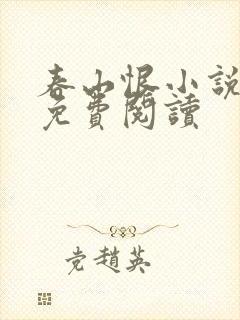 春山恨小說
免費閱讀
党趙英